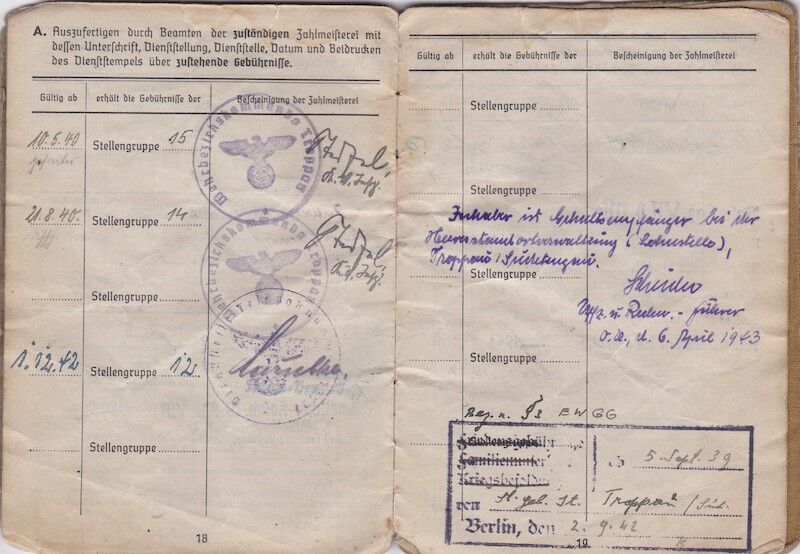 A. Auszufertigen durch Beamten der zuständigen Zahlmeisterei mit
dessen Unterschrift, Dienststellung, Dienststelle, Datum und Beidrucken
des Dienststempels über zustehende Gebührnisse.
Gültig ab erhält die Gebührnisse der Bescheinigung der Zahlmeisterei
10.5.40 Stellengruppe 15
Wehrbezirkskommando Troppau
21.8.40. Stellengruppe 14
Wehrbezirkskommando Troppau
Stellengruppe
1.12.42 Stellengruppe 12
Stellengruppe
18
Gültig ab erhält die Gebührnisse der Bescheinigung der Zahlmeisterei
Stellengruppe
Stellengruppe
Inhaber ist Gehaltsempfänger bei der
Heeresstandortverwaltung (Lohnstelle),
Troppau/Sudetengau.
Stellengruppe
Uffz. u. Rechn.-führer
O.U., d. 6. April 1943
Stellengruppe
§3 EWGG
Stellengruppe
Friedensgebühr
Familienunter
Kriegsbesold
5. Sept. 39
von Troppau / Sud.
Berlin, den 2. 9. 42
19